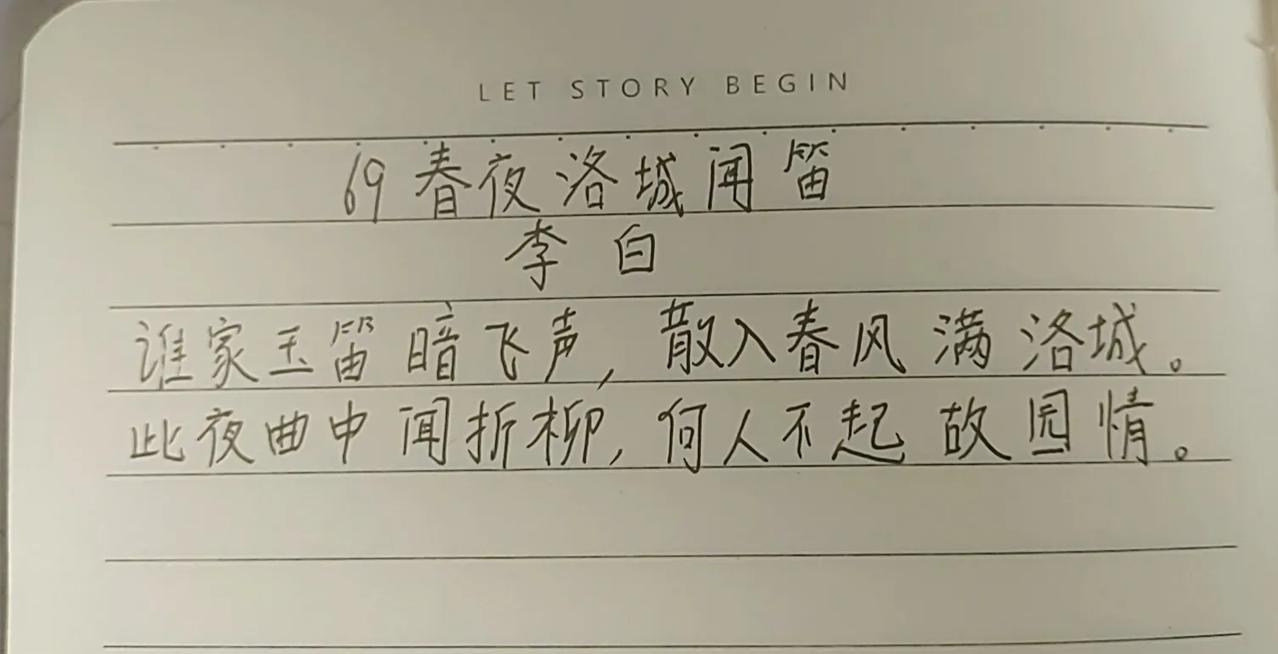 LET STORY BEGIN
69 春夜洛城闻笛
李白
谁家玉笛暗飞声,散入春风满洛城。
此夜曲中闻折柳,何人不起故园情。